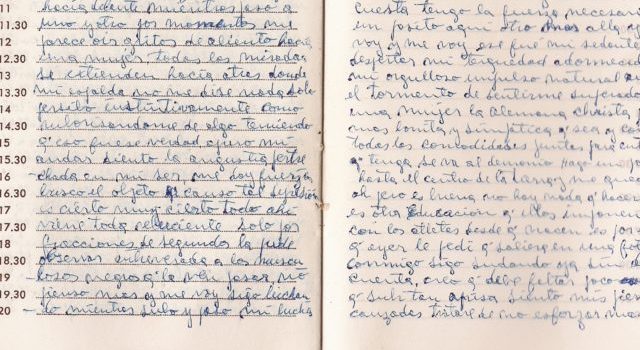 11 hacia adente mientras paso a
11.30 uno y otro por momentos me
12 parece oir gritos de aliento hacia
12.30 una mujer todas las miradas
13 se extienden hacia atras donde
13.30 mi espalda no me dice nada solo
14 persibo instintivamente como
14.30 ruborisandome de algo temiendo
15 q' eso fuese verdad apuro mi
15.30 andar siento la angustia pertre
16 chada en mi ser, me doy fuerzas
16.30 busco el objeto q' causo tal
17 es cierto muy cierto todo ahi
17.30 viene toda reluciente solo por
18 fracciones de segundos la pude
18.30 observar
19 losos negros q' la ven pasar, no
19.30 pienso mas y me voy sigo luchan
20 do mientras subo y paso mi lucha
cuesta tengo la fuerza necesaria
un pasito aqui otro mas alla y
voy y me voy, ese fue mi sedante
despertar mi terquedad adormecida
mi orgulloso impulso natural
el tormento de sentirme superado
una mujer la Alemana Christa
mas bonita y simpatica q' sea y co
todas las comodidades juntas
q' tenga se va al demonio pago
hasta el centro de la tierra y me
ah pero es buena no hay nada q' hacer
es otra Educacion q' ellos imponen
con los atletas desde q' nacen es
q' ayer le pedi q' saliera en una
conmigo sigo sudando ya sin
cuenta, creo q' debe faltar poco
q' subi tan aprisa siento mis pier
cansadas trataré de no esforzar mas